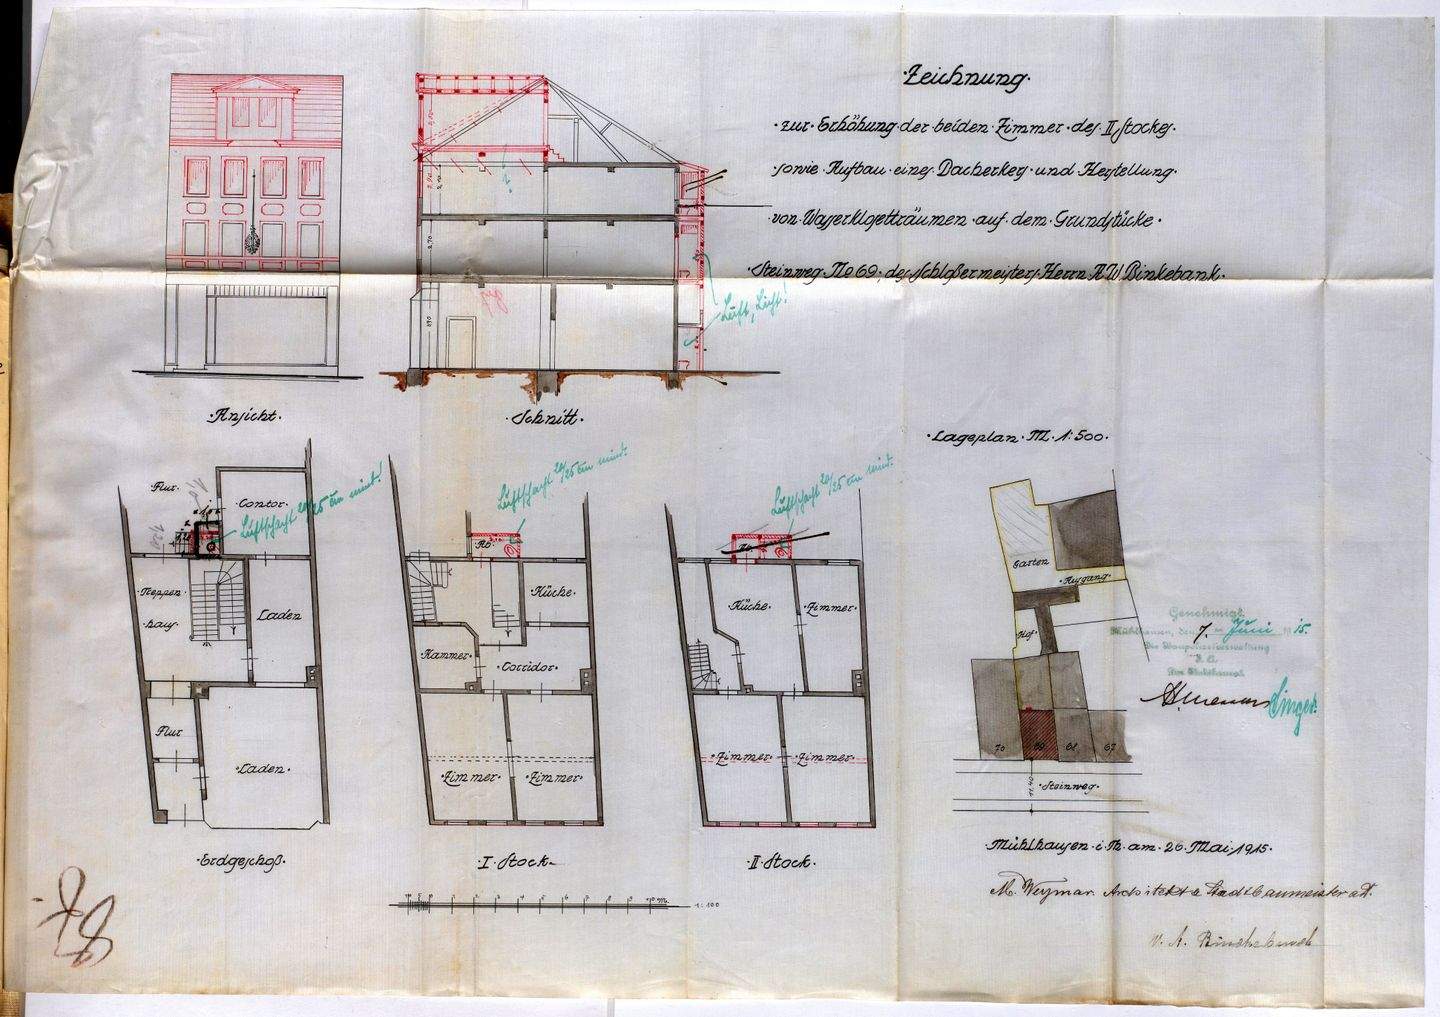 Zeichnung
zur Erhöhung der beiden Zimmer des II. Stockes
sowie Aufbau eines Dacherkers und Herstellung
von Wasserklosetträumen auf dem Grundstücke
Steinweg No 69, des Schloßermeisters Herrn A W Binkebank.
Luft, Licht!
Ansicht.
Schnitt.
Lageplan M. 1:500.
Flur.
Contor.
Luftschacht 20/25 cm mind!
Treppen
haus
Laden
Flur
Laden
Erdgeschoß.
Luftschacht 20/25 cm mind.
Ab.
Küche
Kammer
Corridor
Zimmer
Zimmer
I. Stock
Luftschacht 20/25 cm mind.
Küche
Zimmer
Zimmer
Zimmer
II. Stock.
1:100
Garten
Ausgang
Hof
70
69
68
67
Steinweg
Genehmigt.
Mühlhausen, den 7. Juni 1915.
Die Baupolizeiverwaltung
Singer.
Mühlhausen i. Th. am 26. Mai 1915.
M. Weymar. Architekt & Stadtbaumeister a.D.